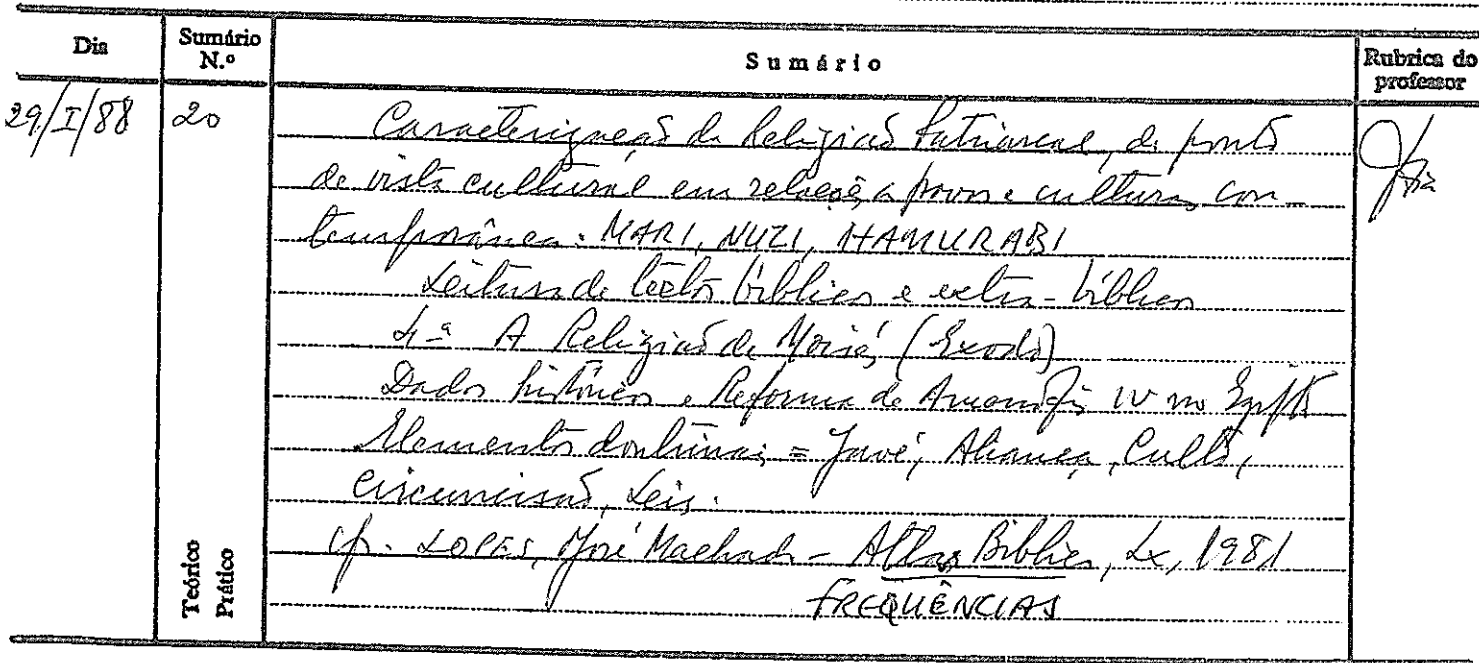 Dia
Sumário N.º
Sumário
Rubrica do professor
29/I/88
20
Caracterização da Religião Patriarcal, do ponto
de vista cultural em relação a povos e culturas con-
temporâneas: MARI, NUZI, HAMURABI
Leitura de textos bíblicos e extra-bíblicos
4-ª A Religião de Moisés (Exodo)
Dados históricos e Reforma de Amenófis IV no Egipto
Elementos doutrinais = Javé, Aliança, Culto,
Circuncisão, Leis.
Cfr. LOPES, José Machado - Atlas Bíblico, Lx, 1981
FREQUÊNCIAS
Teórico
Prático